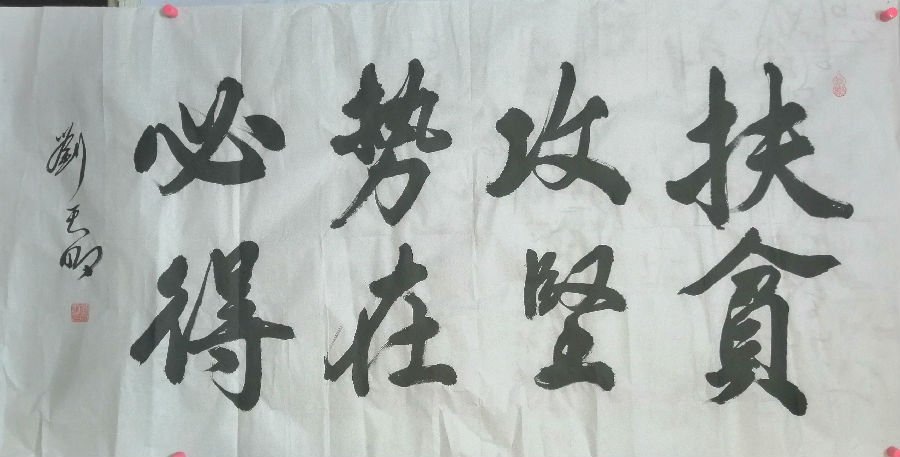 扶貧
攻堅
势在
必得
劉天明